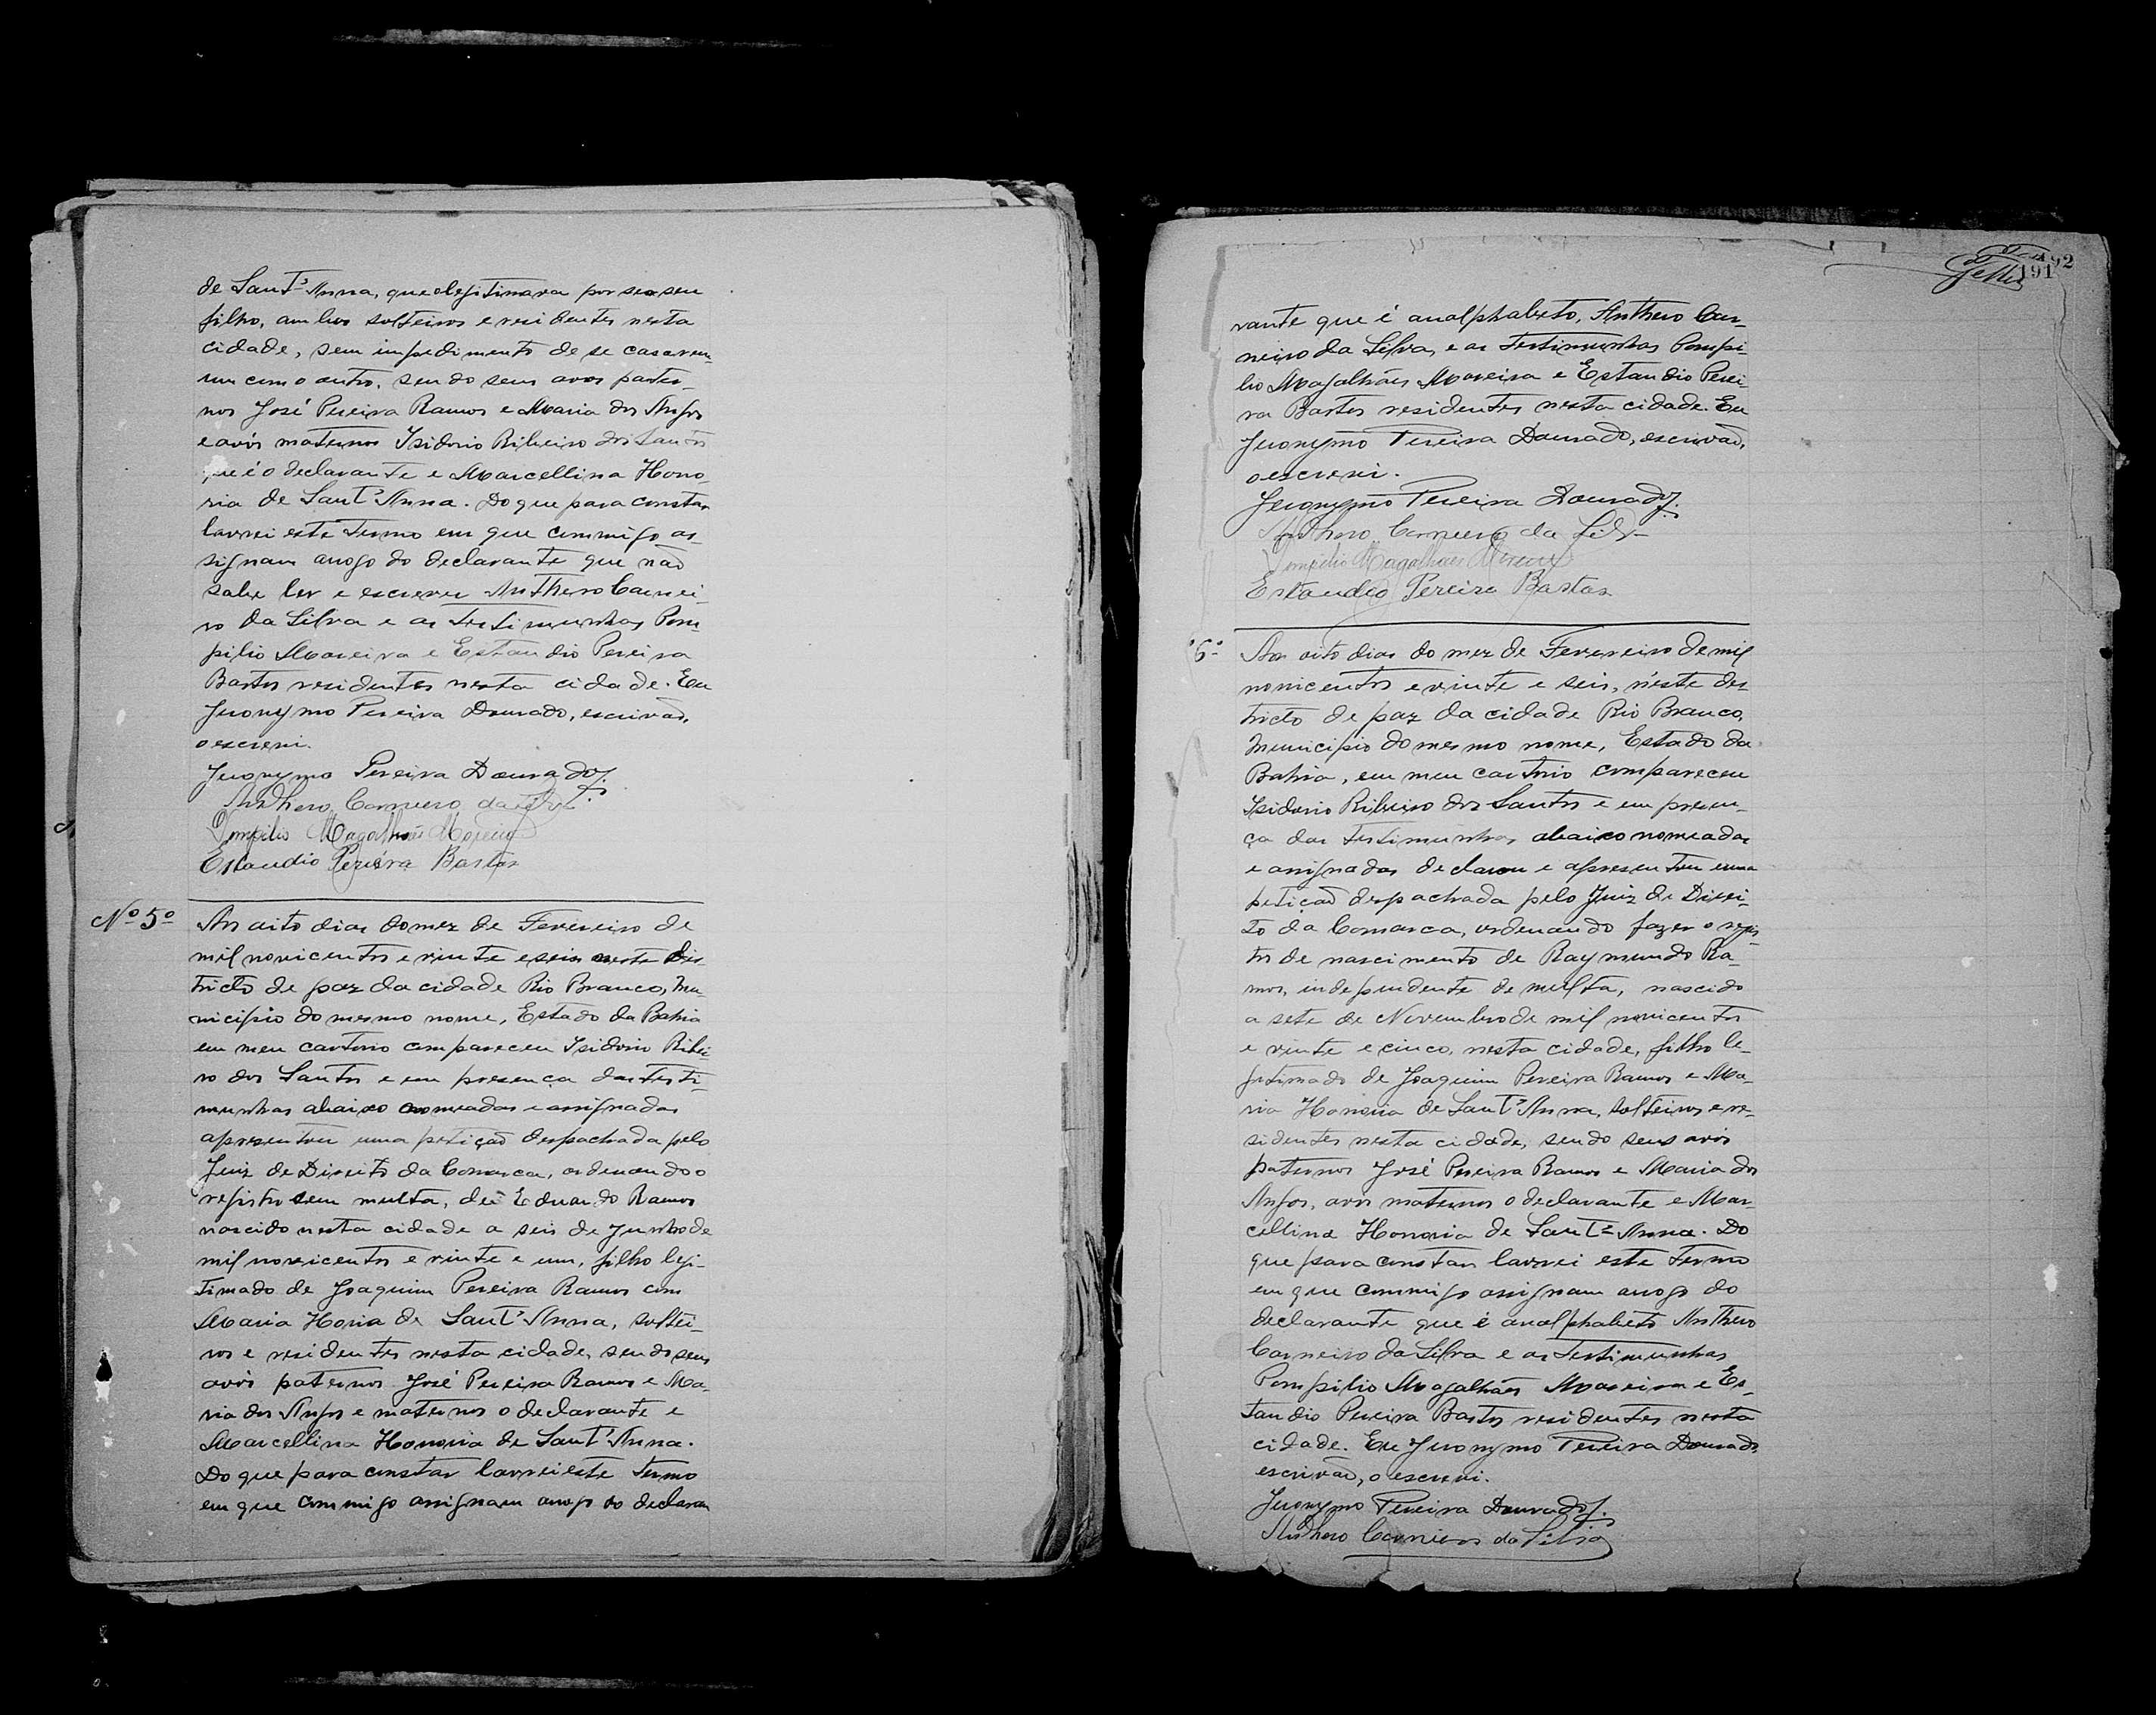 de Sant'Anna, que elegitimara por seu seu
filho, ambos solteiros e residentes nesta
cidade, sem impedimento de se casarem
um com o outro, sendo seus avos pater-
nos José Pereira Ramos e Maria dos Anjos
e avós maternos Isidorio Ribeiro dos Santos
que é o declarante e Marcellina Hono-
ria de Sant'Anna. Do que para constar
lavrei este termo em que commigo as-
signam arogo do declarante que não
sabe ler e escrever Anthero Carnei-
ro da Silva e as testimunhas Pom-
pilio Moreira e Estaudio Pereira
Bastos residentes nesta cidade. Eu
Jeronymo Pereira Dourado, escrivão,
o escrevi.
Jeronymo Pereira Dourado.
Anthero Carneiro da Silva
Pompilio Magalhães Moreira
Estaudio Pereira Bastos
Nº 5º
Aos oito dias do mez de Fevereiro de
mil novicentos e vinte e seis neste dis-
tricto de paz da cidade Rio Branco, mu-
nicipio do mesmo nome, Estado da Bahia
em meu cartorio compareceu Isidorio Ribei-
ro dos Santos e em presença das testi-
munhas abaixo nomeadas e assignadas
apresentou uma petição despachada pelo
Juiz de Direito da Comarca, ordenando o
registro sem multa, de Eduardo Ramos
nascido nesta cidade a seis de Junho de
mil novicentos e vinte e um, filho legi-
timado de Joaquim Pereira Ramos com
Maria Honia de Sant'Anna, soltei-
ros e residentes nesta cidade, sendo seus
avós paternos José Pereira Ramos e Ma-
ria dos Anjos e maternos o declarante e
Marcellina Honoria de Sant'Anna.
Do que para constar lavrei este termo
em que commigo assignam arogo do declaran
191 192
rante que é analphabeto, Anthero Car-
neiro da Silva, e as testimunhas Pompi-
lio Magalhães Moreira e Estaudio Perei-
ra Bastos residentes nesta cidade. Eu
Jeronymo Pereira Dourado, escrivão,
o escrevi.
Jeronymo Pereira Dourado.
Anthero Carneiro da Silva
Pompilio Magalhães Moreira
Estaudio Pereira Bastos
6º
Aos oito dias do mez de Fevereiro de mil
novicentos e vinte e seis, n'este dis-
tricto de paz da cidade Rio Branco,
Municipio do mesmo nome, Estado da
Bahia, em meu cartorio compareceu
Isidorio Ribeiro dos Santos e em presen-
ça das testimunhas abaixo nomeadas
e assignadas declarou e apresentou uma
petição despachada pelo Juiz de Direi-
to da Comarca, ordenando fazer o regis-
tro de nascimento de Raymundo Ra-
mos, independente de multa, nascido
a sete de Novembro de mil novicentos
e vinte e cinco, nesta cidade, filho le-
gitimado de Joaquim Pereira Ramos e Ma-
ria Honoria de Sant'Anna, solteiros e re-
sidentes nesta cidade, sendo seus avós
paternos José Pereira Ramos e Maria dos
Anjos, avós maternos o declarante e Mar-
cellina Honoria de Sant'Anna. Do
que para constar lavrei este termo
em que commigo assignam arogo do
declarante que é analphabeto Anthero
Carneiro da Silva e as testimunhas
Pompilio Magalhães Moreira e Es-
taudio Pereira Bastos residentes nesta
cidade. Eu Jeronymo Pereira Dourado,
escrivão, o escrevi.
Jeronymo Pereira Dourado.
Anthero Carneiro da Silva